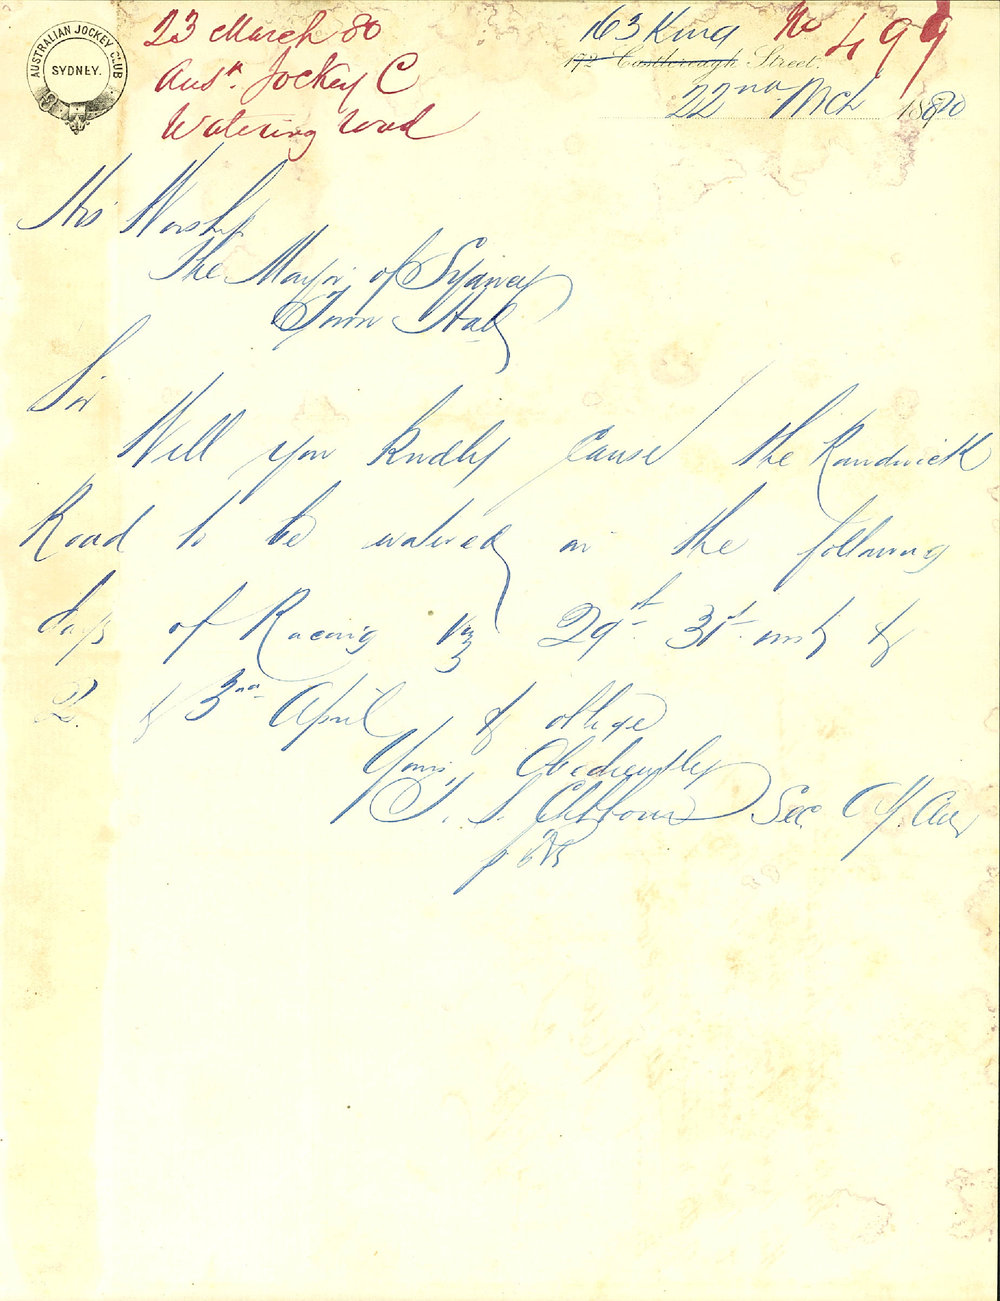 AUSTRALIAN JOCKEY CLUB
SYDNEY.
23 March 80
Ausn Jockey C
Watering road
No 499
163 King
172 Castlereagh Street.
22nd Mch 1880
His Worship
The Mayor of Sydney
Town Hall
Sir
Will you kindly cause the Randwick
Road to be watered on the following
days of Racing viz 29th 31st inst &
2. & 3rd April & oblige
Yours Obediently
T. S. Clibborn Sec